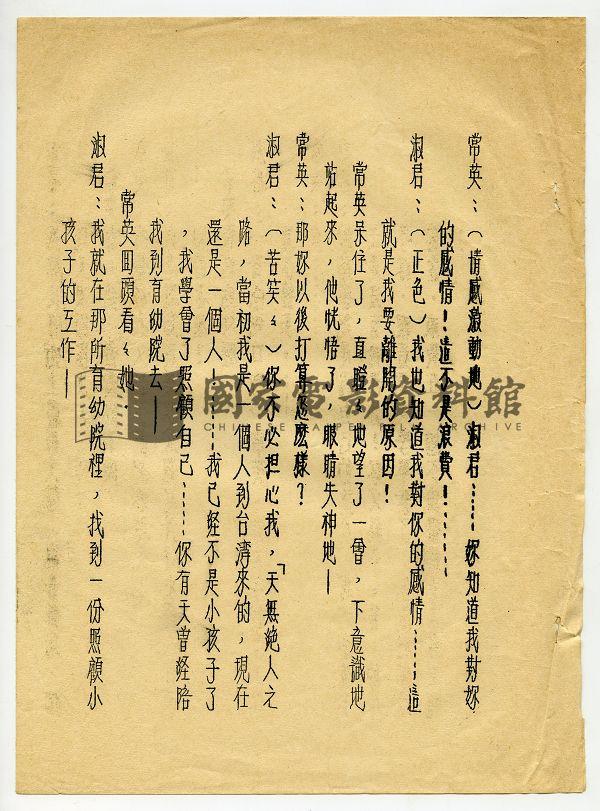 常英：（情感激動地）淑君……妳知道我對妳
的感情！這不是浪費！……
淑君：（正色）我也知道我對你的感情……這
就是我要離開的原因！
常英呆住了，直瞪々地望了一會，下意識地
站起來，他恍悟了，眼睛失神地—
常英：那妳以後打算怎麼樣？
淑君：（苦笑々）你不必担心我，「天無絕人之
路，當初我是一個人到台湾來的，現在
還是一個人！……我已经不是小孩子了
，我學會了照顧自己……你有天曾经陪
我到育幼院去—
常英回頭看々她．
淑君：我就在那所育幼院裡，找到一份照顧小
孩子的工作—
國家電影資料館
CHINESE TAIPEI FILM ARCHIVE